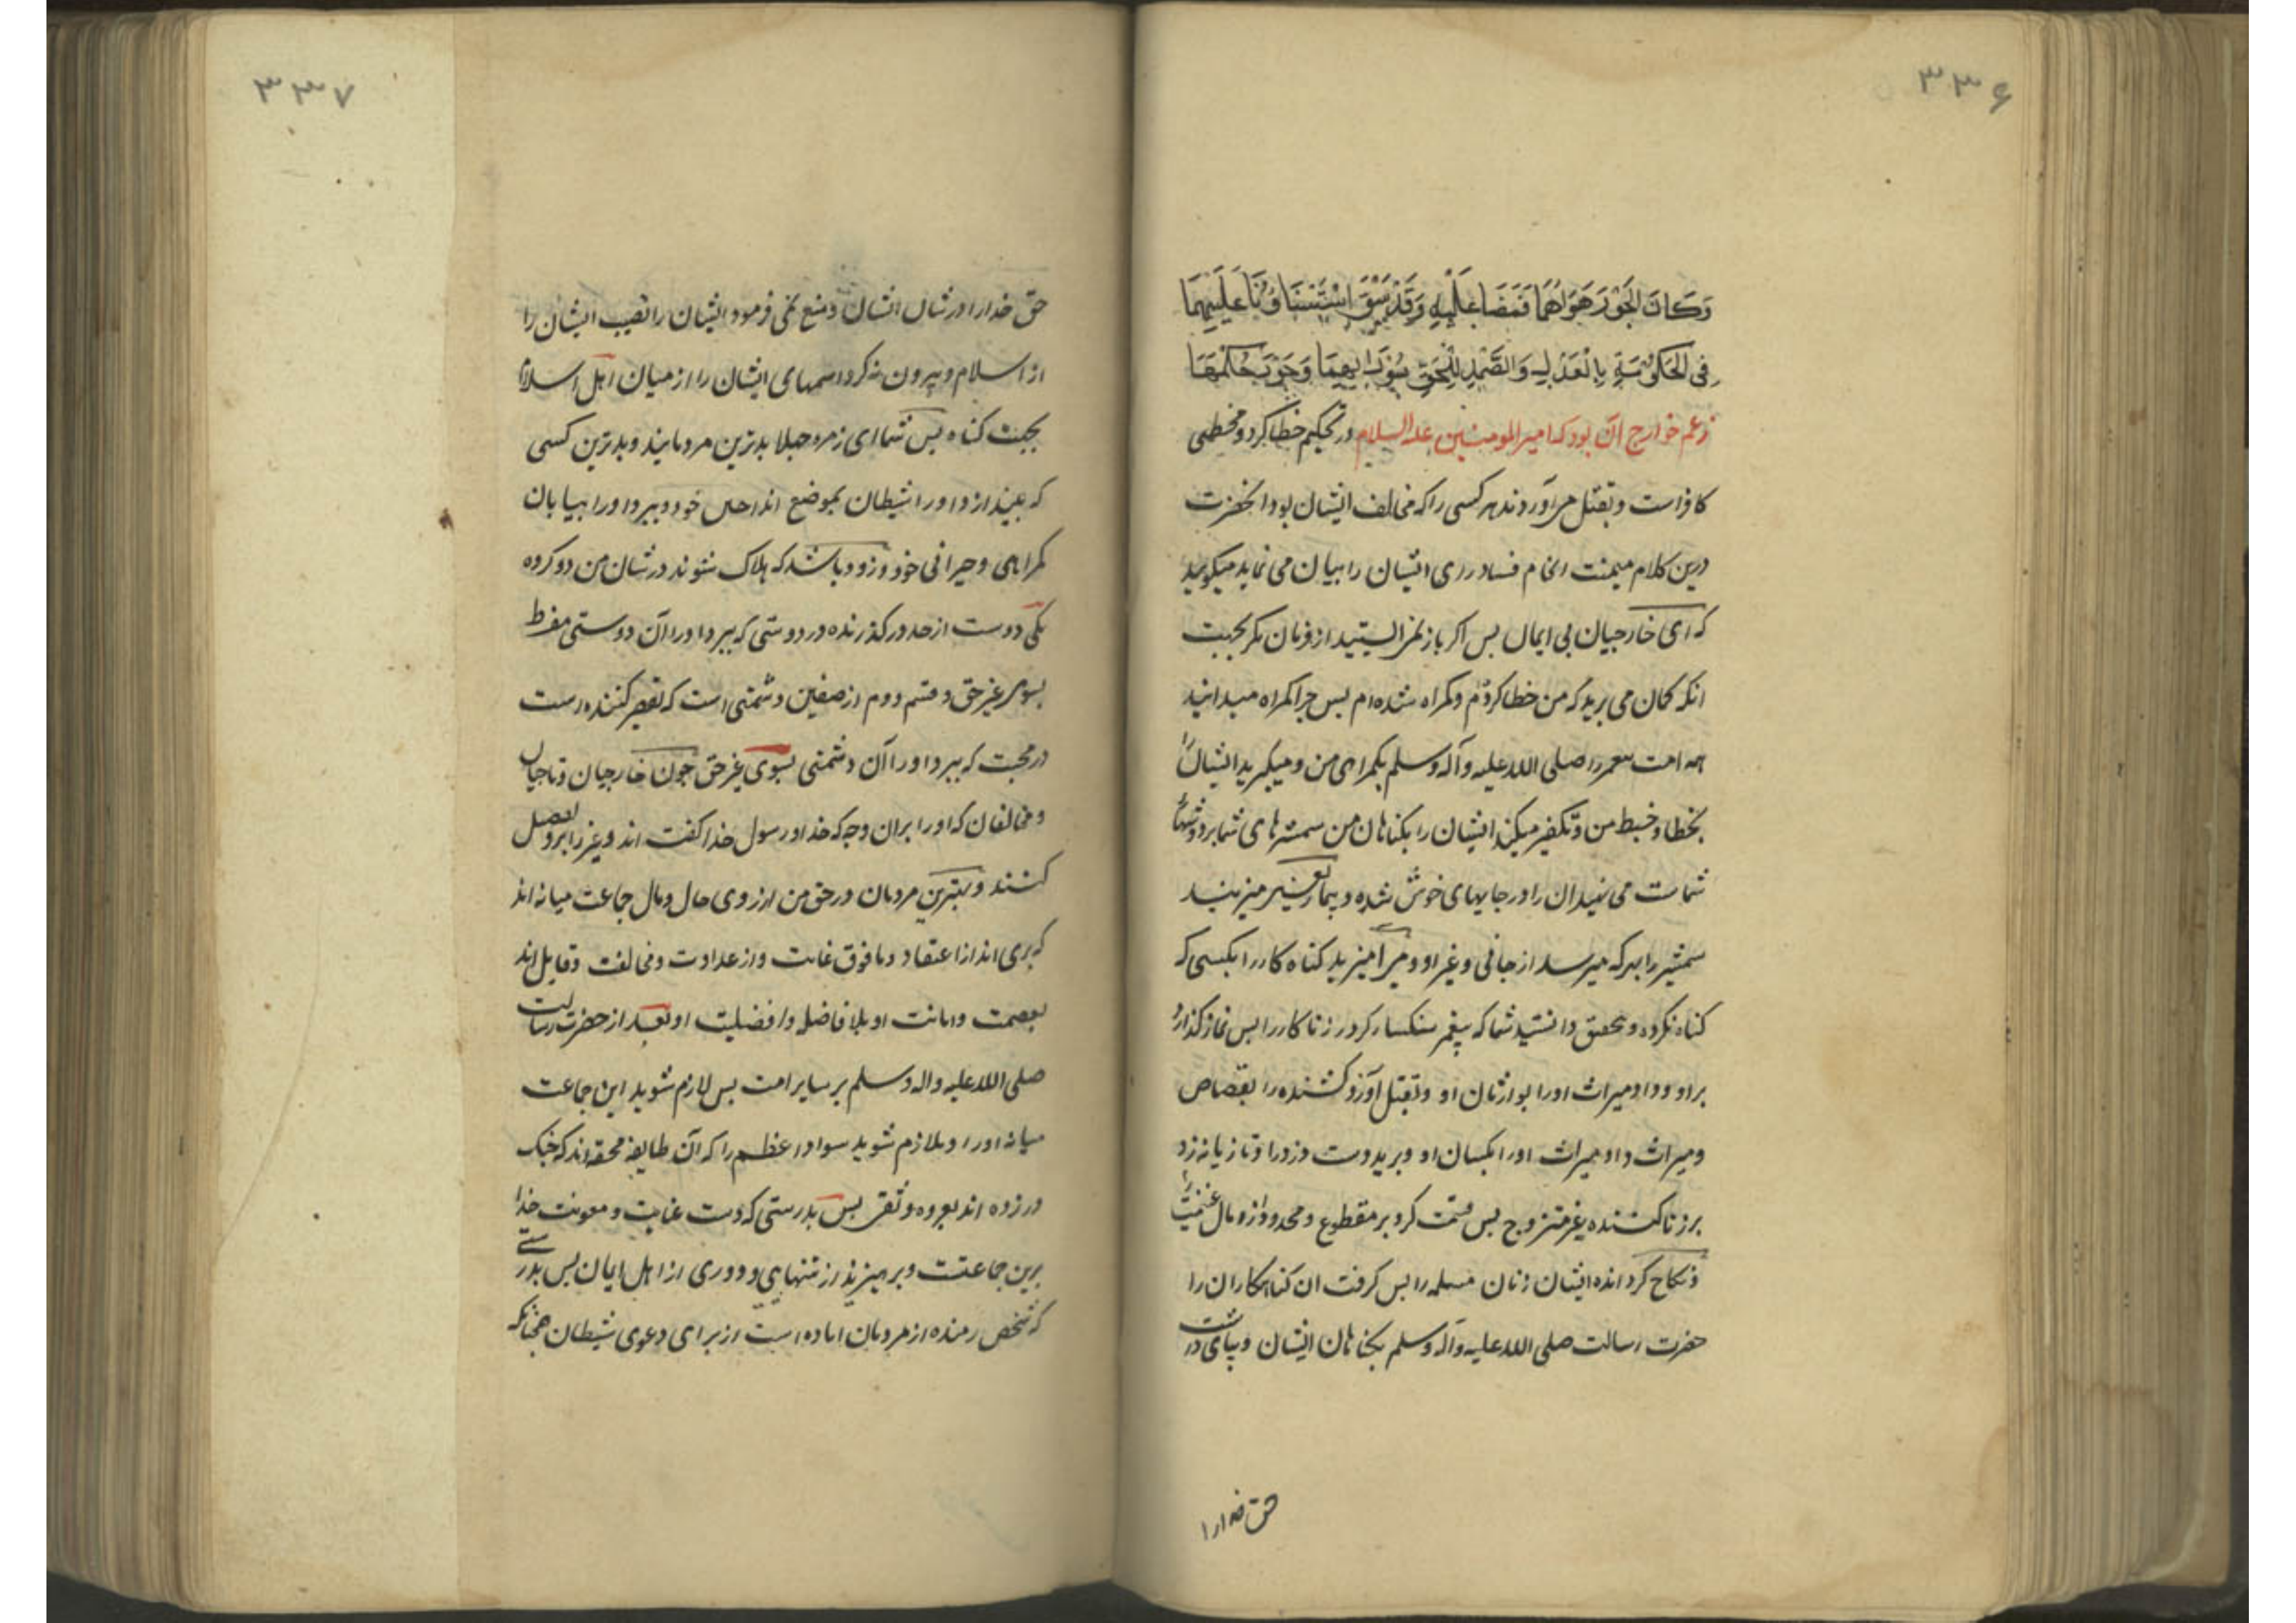 ۳۳۶
وَكَانَ الْجَوْرَ هَوَاهُمَا فَمَضَيَا عَلَيْهِ وَقَدْ سَبَقَ اسْتِثْنَاؤُنَا عَلَيْهِمَا
فِي الْحُكُومَةِ بِالْعَدْلِ وَالصَّمْدِ لِلْحَقِّ سُوءَ رَأْيِهِمَا وَجَوْرَ حُكْمِهِمَا
زعم خوارج آن بود که امیرالمومنین علیه السلام در تحکیم خطا کرد و مخطی
کافر است و بقتل می آوردند هر کسی را که مخالف ایشان بود انحضرت
درین کلام میمنت انجام فساد رای ایشان را بیان می نماید میکوید
که ای خارجیان بی ایمان بس اکر باز نمی ایستید از فرمان مکر بجهت
انکه کمان می برید که من خطا کردم و کمراه شده ام بس چرا کمراه میدانید
همه امت محمد را صلی الله علیه وآله وسلم بکمراهی من و میکیرید ایشان را
بخطا و خبط من و تکفیر میکنید ایشان را بکناهان من شمشیرهای شما بر دوشهای
شماست می نهید ان را در جایهای خوش شده و بیمار میزنید
شمشیر را بهر که میرسد از جانی و غیر او و می آمیزید کناه کار را بکسی که
کناه نکرده و بتحقیق دانستید شما که پیغمبر سنکسار کرد زنا کار را بس نماز کذارد
بر او و داد میراث او را بوارثان او و بقتل آورد کشنده را بقصاص
و میراث داد میراث او را بکسان او و برید دست دزد را و تازیانه زد
بر زنا کننده غیر متزوج بس قسمت کرد بر مقطوع و محدود از مال غنیمت را
و نکاح کردانده ایشان زنان مسلمه را بس کرفت ان کناهکاران را
حضرت رسالت صلی الله علیه وآله وسلم بکناهان ایشان و بپای داشت در
حق خدارا
۳۳۷
حق خدا را در شان ایشان و منع نمی فرمود ایشان را نصیب ایشان را
از اسلام و بیرون نه کرد اسمهای ایشان را از میان اهل اسلام
بجهت کناه بس شما ای زمره جهلا بدترین مردمانید و بدترین کسی
که بیندازد او را شیطان بموضع انداختن خود و ببرد او را ببیابان
کمراهی و حیرانی خود و زود باشد که هلاک شوند در شان من دو کروه
یکی دوست از حد در کذرنده در دوستی که ببرد او را آن دوستی مفرط
بسوی غیر حق و قسم دوم از صنفین دشمنی است که تقصیر کننده است
در محبت که ببرد او را آن دشمنی بسوی غیر حق چون خارجیان و ناجیان
و مخالفان که او را بران وجه که خدا و رسول خدا کفته اند و غیر را برو تفضیل
کنند و بهترین مردمان در حق من از روی حال و مال جماعت میانه اند
که بری اند از اعتقاد و ما فوق غایت و از عداوت و مخالفت و قایل اند
بعصمت و امانت او بلا فاصله و افضلیت او بعد از حضرت رسالت
صلی الله علیه واله وسلم بر سایر امت بس لازم شوید این جماعت
میانه او را و ملازم شوید سواد اعظم را که آن طایفه محقه اند که چنک
در زده اند بعروه وثقی بس بدرستی که دست عنایت و معونت خدا
برین جماعتست و بپرهیزید از تنهایی و دوری از اهل ایمان بس بدرستی
که شخص رمنده از مردمان اماده است از برای دعوی شیطان همچنانکه